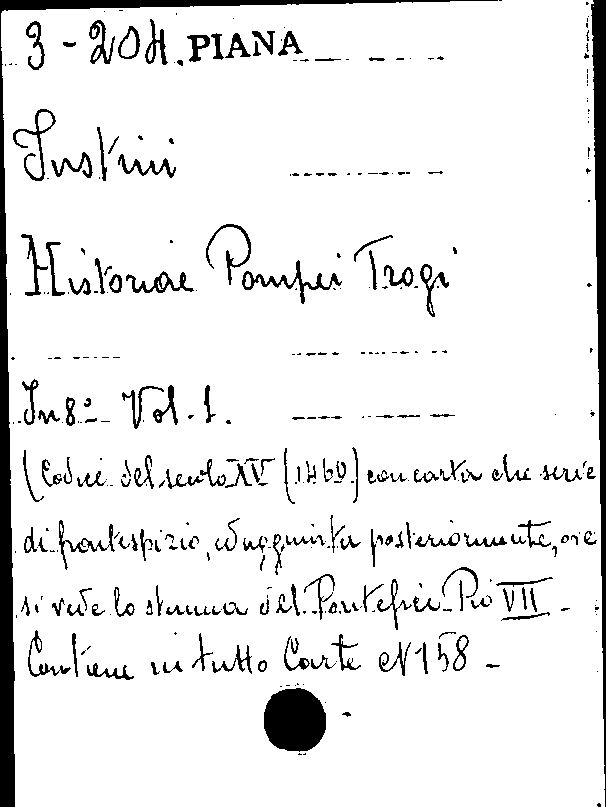 3-204. PIANA
Justini
Historiae Pompei Trogi
In 8º Vol. 1.
(Codice del secolo XV (1460) con carta che serve
di frontespizio, ed aggiunta posteriormente, ove
si vede lo stemma del Pontefice Pio VII -
Contiene in tutto Carte N 158 -